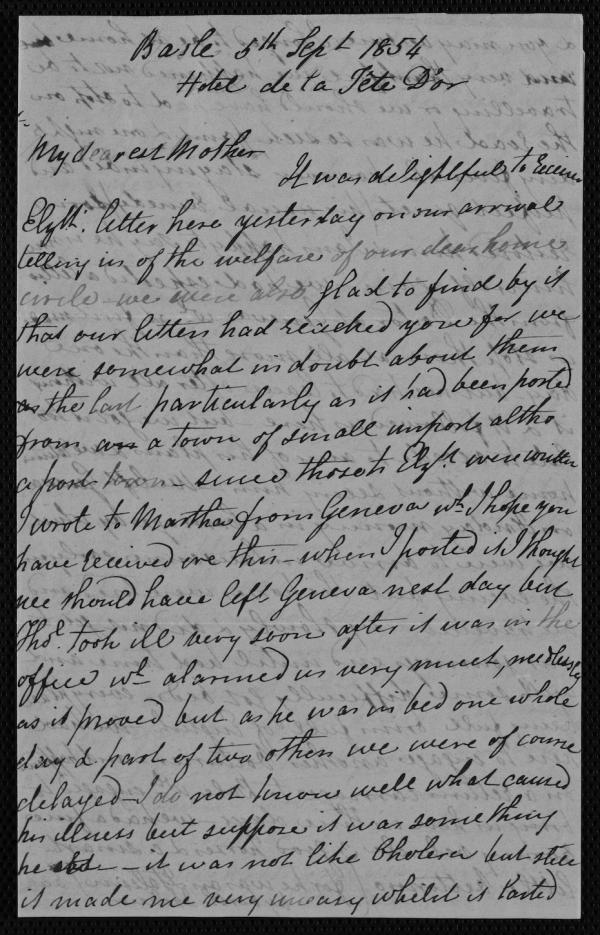 Basle 5th Sept 1854
Hotel de la Tête D'or
My dearest Mother
It was delightful to receive
Elizth. letter here yesterday on our arrival
telling us of the welfare of our dear home
circle - we were also glad to find by it
that our letters had reached you for we
were somewhat in doubt about them
as the last particularly as it had been posted
from a town of small import altho
a post town - since those to Elizth. were written
I wrote to Martha from Geneva wh. I hope you
have received ere this - when I posted it I thought
we should have left Geneva next day but
Thos. took ill very soon after it was in the
office wh. alarmed us very much, needlessly
as it proved but as he was in bed one whole
day & part of two others we were of course
delayed - I do not know well what caused
his illness but suppose it was something
he - it was not like Cholera but still
it made me very uneasy whilst it lasted